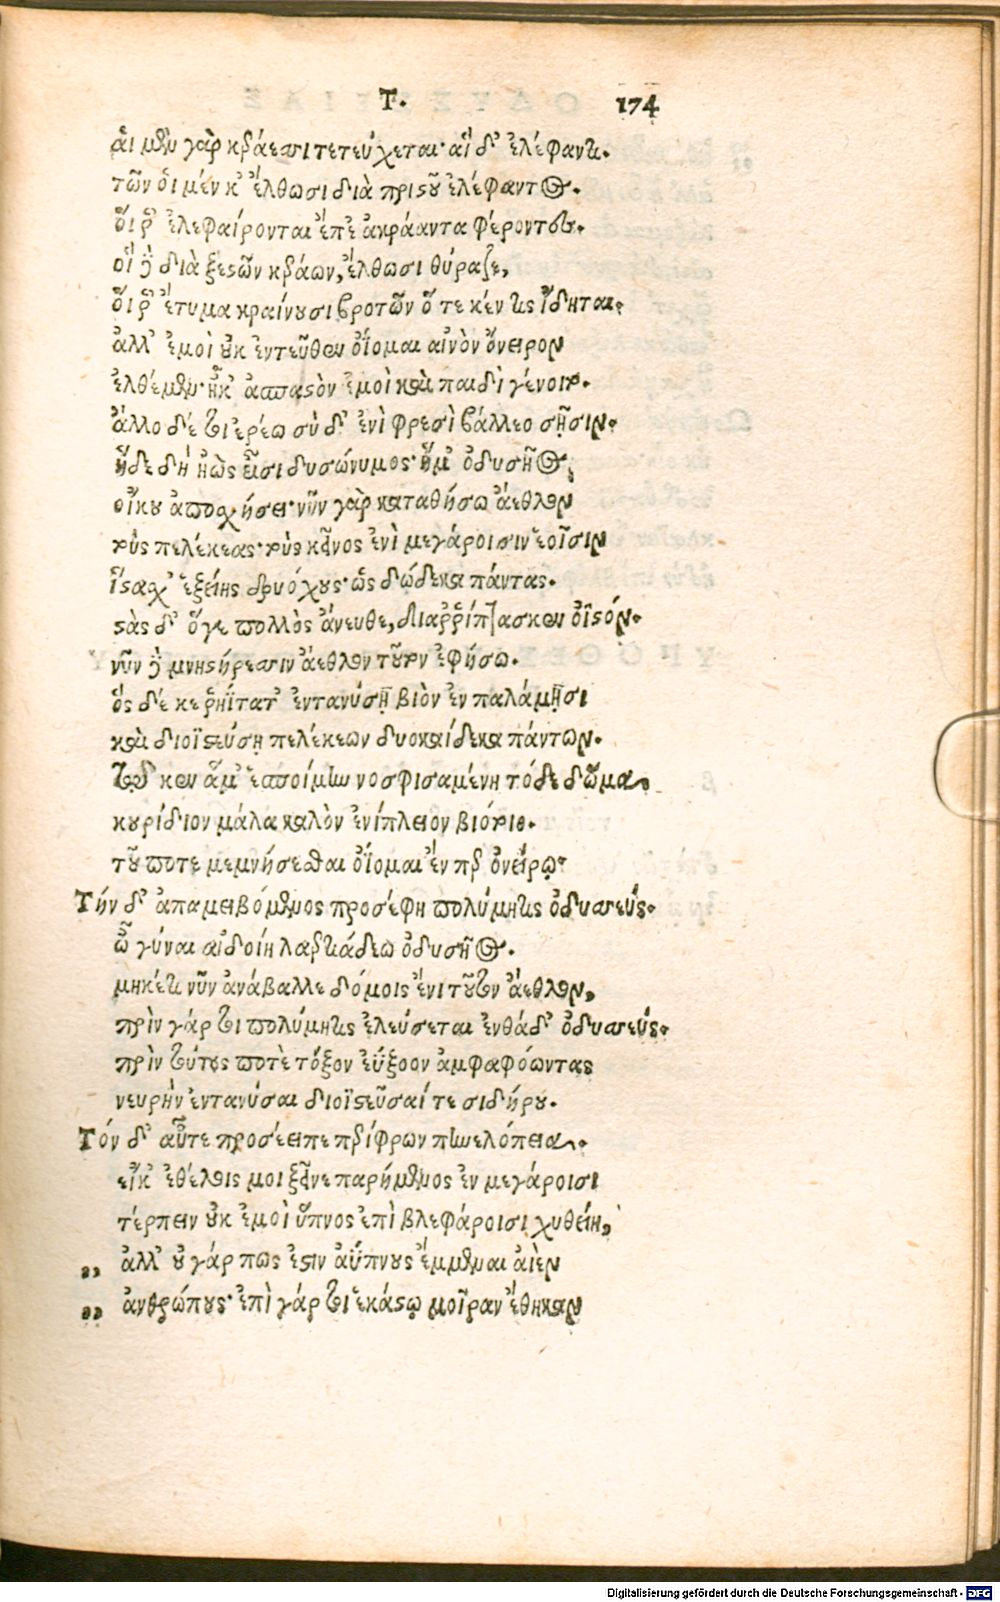 Τ. 174
ἁι μὲν γὰρ κεράεσσι τετεύχεται· αἱ δ᾽ ἐλέφαντι.
τῶν ὁι μέν κ᾽ ἔλθωσι διὰ πριστοῦ ἐλέφαντος.
ὅι ῥ᾽ ἐλεφαίρονται ἔπε᾽ ἀκράαντα φέροντες.
οἱ δὲ διὰ ξεστῶν κεράων, ἔλθωσι θύραζε,
ὅι ῥ᾽ ἔτυμα κραίνουσι βροτῶν ὅ τε κέν τις ἴδηται.
ἀλλ᾽ ἐμοὶ οὐκ ἐντεῦθεν ὀΐομαι αἰνὸν ὄνειρον
ἐλθέμεν· ἦ κ᾽ ἀσπαστὸν ἐμοὶ καὶ παιδὶ γένοιτο.
ἄλλο δέ τοι ἐρέω σὺ δ᾽ ἐνὶ φρεσὶ βάλλεο σῇσιν.
ἥδε δὴ ἠὼς εἶσι δυσώνυμος· ἥ μ᾽ ὀδυσῆος,
οἴκου ἀποσχήσει· νῦν γὰρ καταθήσω ἄεθλον
τοὺς πελέκεας· τοὺς κεῖνος ἐνὶ μεγάροισιν ἑοῖσιν
ἵστασχ᾽ ἑξείης δρυόχους· ὣς δώδεκα πάντας.
στὰς δ᾽ ὅγε πολλὸς ἄνευθε, διαῤῥίπτασκεν ὀϊστόν.
νῦν δὲ μνηστήρεσσιν ἄεθλον τοῦτον ἐφήσω.
ὅς δέ κε ῥηΐτατ᾽ ἐντανύσῃ βιὸν ἐν παλάμῃσι
καὶ διοϊστεύσῃ πελέκεων δυοκαίδεκα πάντων.
τῷ κεν ἅμ᾽ ἑσποίμην νοσφισαμένη τόδε δῶμα.
κουρίδιον μάλα καλὸν ἐνίπλειον βιότοιο.
τοῦ ποτε μεμνήσεσθαι ὀΐομαι ἔν περ ὀνείρῳ.
Τὴν δ᾽ ἀπαμειβόμενος προσέφη πολύμητις ὀδυσσεύς.
ὦ γύναι αἰδοίη λαερτιάδεω ὀδυσῆος.
μηκέτι νῦν ἀνάβαλλε δόμοις ἔνι τοῦτον ἄεθλον,
πρὶν γάρ τοι πολύμητις ἐλεύσεται ἐνθάδ᾽ ὀδυσσεύς.
πρὶν τούτους ποτὲ τόξον ἐΰξοον ἀμφαφόωντας
νευρὴν ἐντανύσαι διοϊστεῦσαί τε σιδήρου.
Τόν δ᾽ αὖτε προσέειπε περίφρων πηνελόπεια.
εἴ κ᾽ ἐθέλοις μοι ξεῖνε παρήμενος ἐν μεγάροισι
τέρπειν οὔκ ἐμοὶ ὕπνος ἐπὶ βλεφάροισι χυθείη,
,, ἀλλ᾽ οὐ γάρ πως ἔστιν ἀΰπνους ἔμμεναι αἰὲν
,, ἀνθρώπους· ἐπὶ γάρ τοι ἑκάστῳ μοῖραν ἔθηκαν
Digitalisierung gefördert durch die Deutsche Forschungsgemeinschaft - DFG